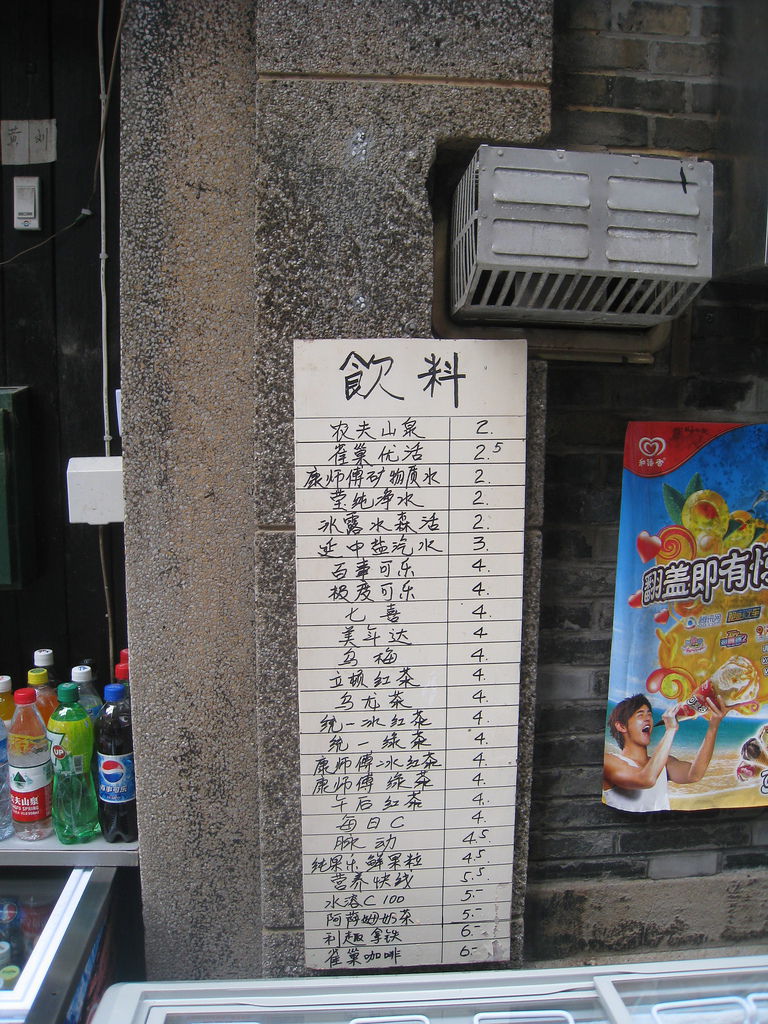 黄 刘
飲料
农夫山泉 2.
雀巢优活 2.5
康师傅矿物质水 2.
莹纯净水 2.
冰露水森活 2.
延中盐汽水 3.
百事可乐 4.
极度可乐 4.
七喜 4.
美年达 4.
乌梅 4.
立顿红茶 4.
乌龙茶 4.
统一冰红茶 4.
统一绿茶 4.
康师傅冰红茶 4.
康师傅绿茶 4.
午后红茶 4.
每日C 4.
脉动 4.5
纯果乐鲜果粒 4.5
营养快线 5.5
水溶C100 5.-
阿萨姆奶茶 5.-
利趣拿铁 6.-
雀巢咖啡 6.-
和路雪
翻盖即有惊
UP
百事可乐
夫山泉